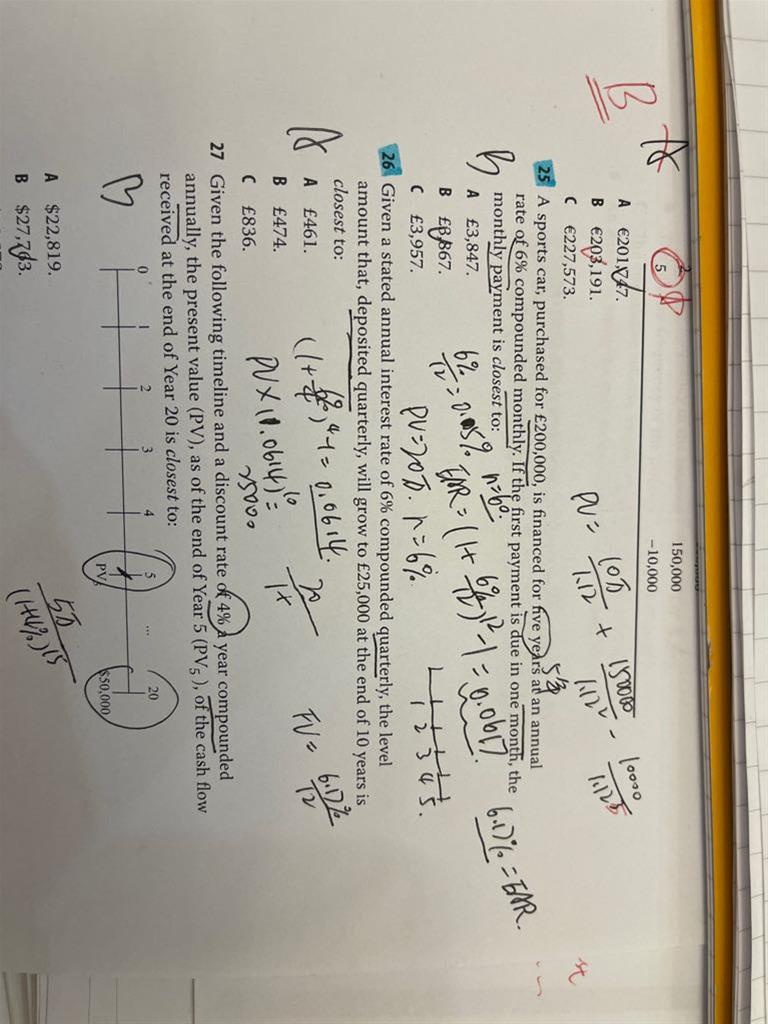 150,000
5 −10,000
A €201,747.
B €203,191.
C €227,573.
B A
PV = 10万/1.12 + 150000/1.12² − 10000/1.12⁵
25 A sports car, purchased for £200,000, is financed for five years at an annual
rate of 6% compounded monthly. If the first payment is due in one month, the
monthly payment is closest to:
B
A £3,847.
B £3,867.
C £3,957.
n=60.
EAR = (1 + 6%/12)^12 − 1 = 0.0617.
6.17% = EAR.
PV=20万. r=6%.
1 2 3 4 5.
26 Given a stated annual interest rate of 6% compounded quarterly, the level
amount that, deposited quarterly, will grow to £25,000 at the end of 10 years is
closest to:
A
A £461.
B £474.
C £836.
(1+6%/4)^4−1 = 0.0614.
PV×(1.0614)^10 =
25000
FV = 6.17%/12
27 Given the following timeline and a discount rate of 4% a year compounded
annually, the present value (PV), as of the end of Year 5 (PV₅), of the cash flow
received at the end of Year 20 is closest to:
B
0 1 2 3 4 5 ... 20
PV₅ $50,000
A $22,819.
B $27,763.
5万/(1+4%)^15